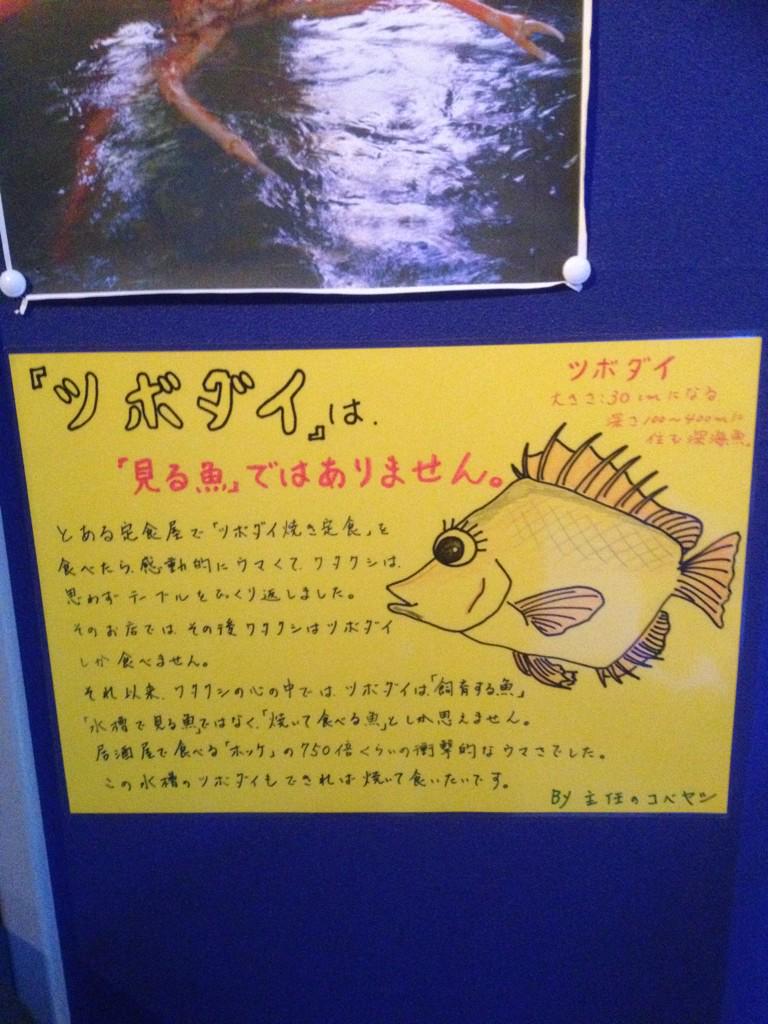 『ツボダイ』は、
「見る魚」ではありません。
ツボダイ
大きさ:30cmになる
深さ100〜400mに
住む深海魚。
とある定食屋で「ツボダイ焼き定食」を
食べたら、感動的にウマくて、ワタクシは、
思わずテーブルをひっくり返しました。
そのお店では、その後ワタクシはツボダイ
しか食べません。
それ以来、ワタクシの心の中では、ツボダイは、「飼育する魚」
「水槽で見る魚」ではなく、「焼いて食べる魚」としか思えません。
居酒屋で食べる「ホッケ」の750倍くらいの衝撃的なウマさでした。
この水槽のツボダイもできれば焼いて食いたいです。
BY 主任のコバヤシ